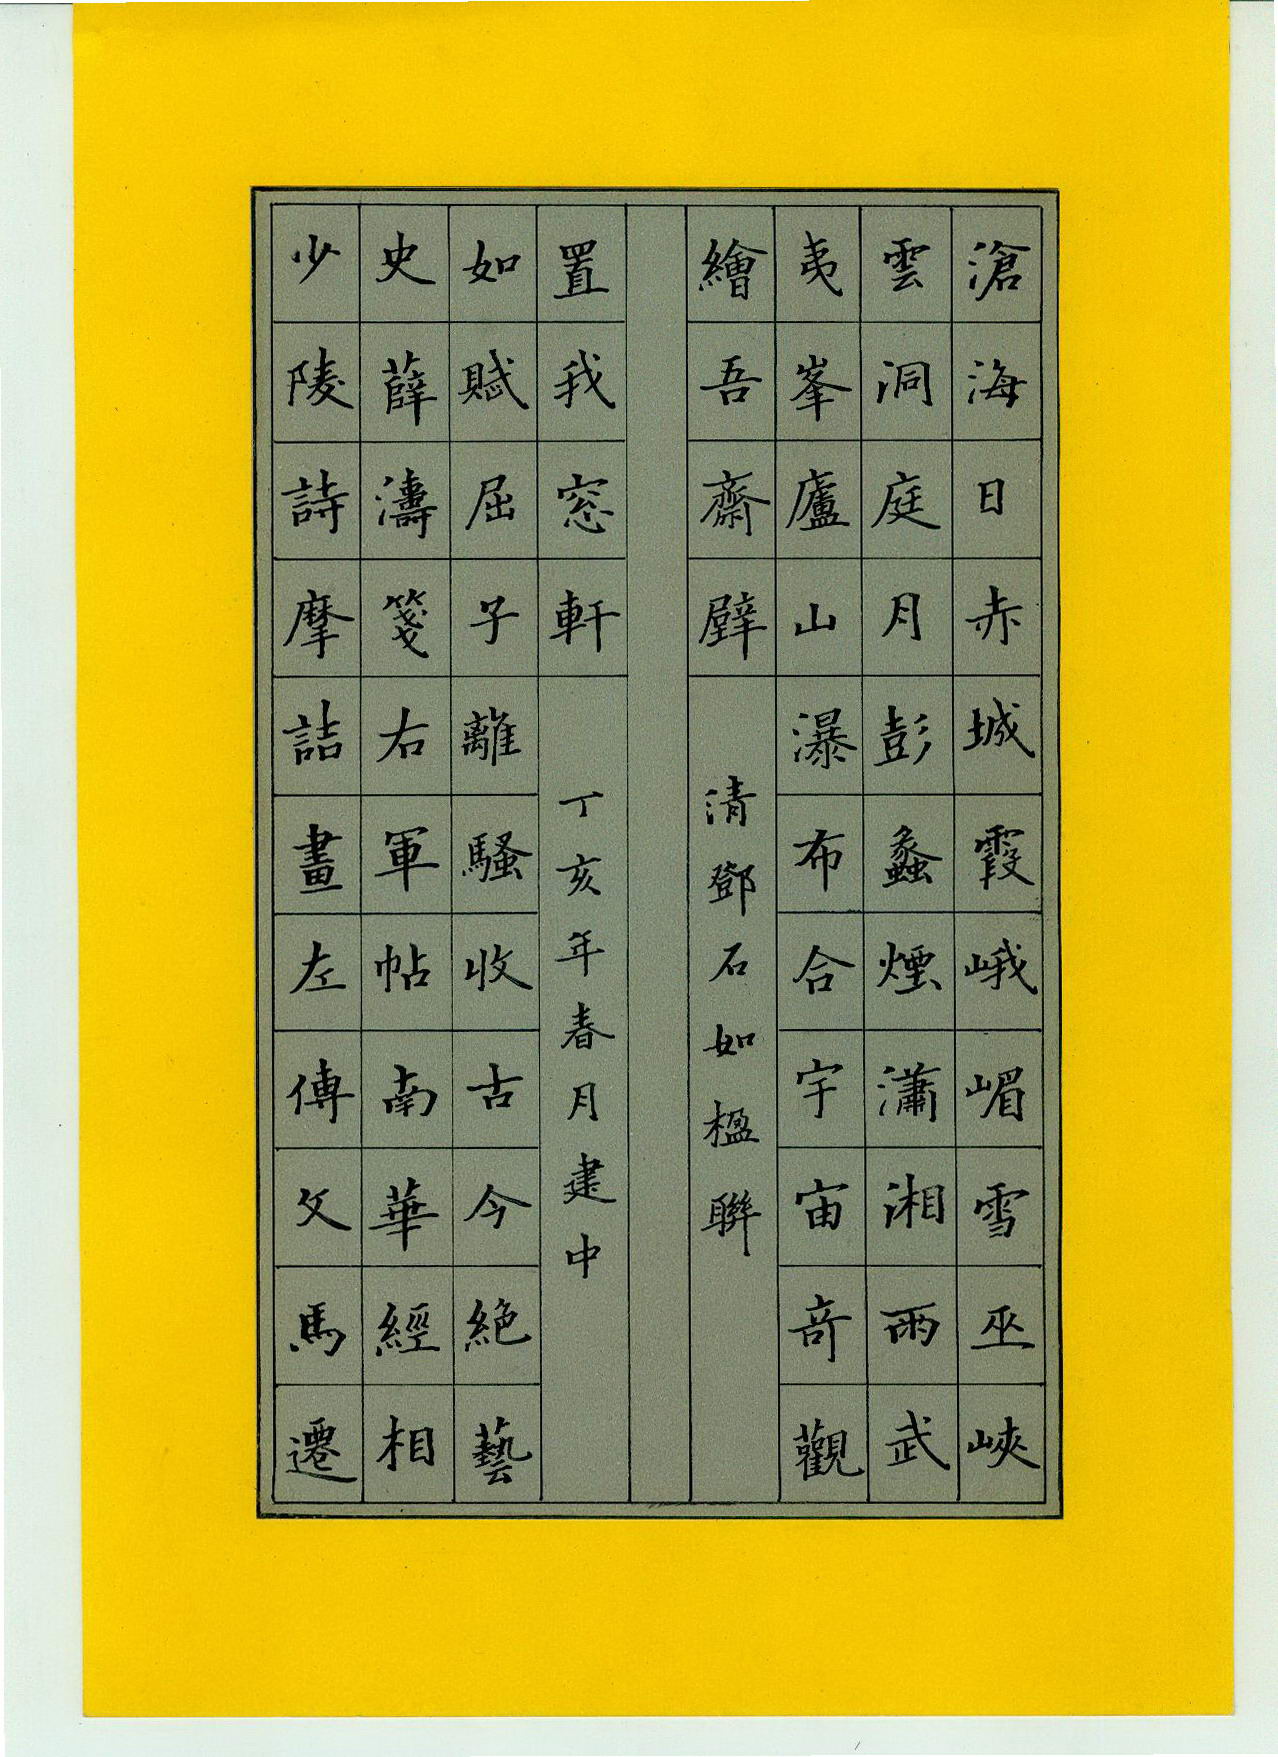 滄海日赤城霞峨嵋雪巫峽
雲洞庭月彭蠡煙瀟湘雨武
夷峯廬山瀑布合宇宙奇觀
繪吾齋壁
清鄧石如楹聯
少陵詩摩詰畫左傳文馬遷
史薛濤箋右軍帖南華經相
如賦屈子離騷收古今絕藝
置我窓軒
丁亥年春月建中